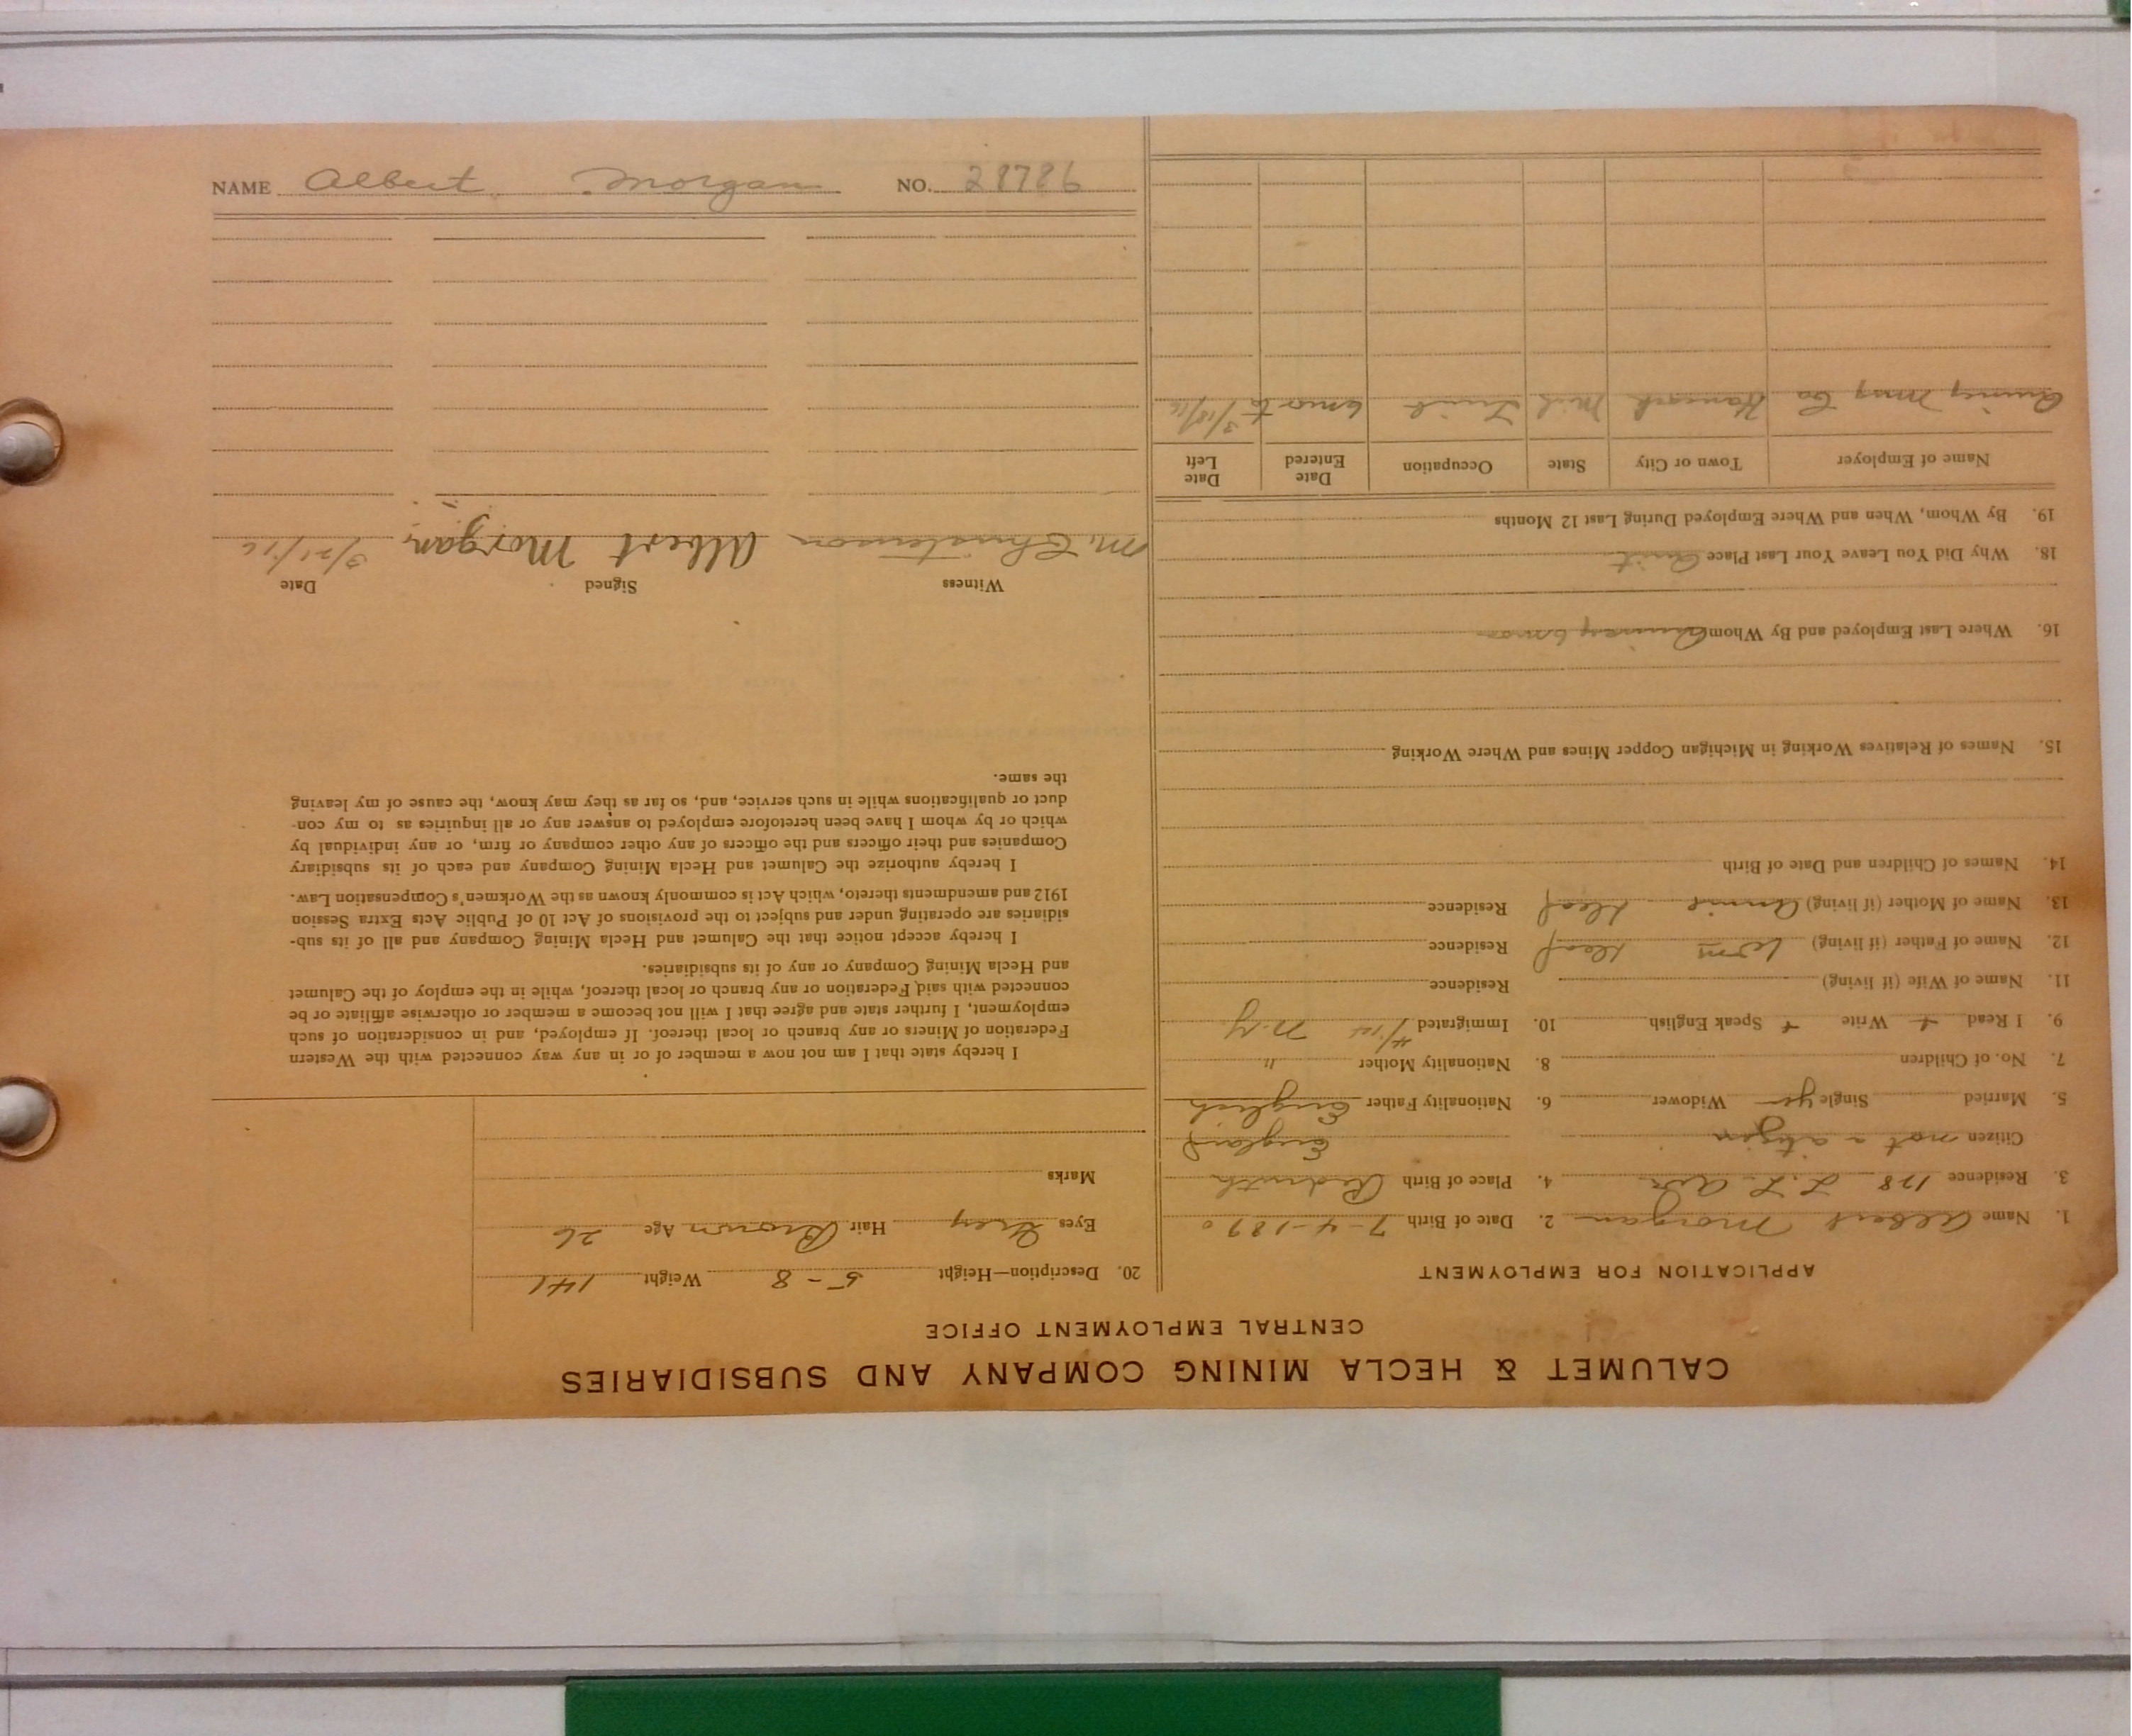 CALUMET & HECLA MINING COMPANY AND SUBSIDIARIES
CENTRAL EMPLOYMENT OFFICE
APPLICATION FOR EMPLOYMENT
1. Name Albert Morgan 2. Date of Birth 7-4-1890
3. Residence 128 L. L. 4. Place of Birth Redruth
Citizen not a citizen England
5. Married Single yes Widower 6. Nationality Father English
7. No. of Children 8. Nationality Mother "
9. I Read + Write + Speak English 10. Immigrated N.Y.
11. Name of Wife (if living) Residence
12. Name of Father (if living) Wm Residence
13. Name of Mother (if living) Annie Residence
14. Names of Children and Date of Birth
15. Names of Relatives Working in Michigan Copper Mines and Where Working
16. Where Last Employed and By Whom Quincy 6 mos
18. Why Did You Leave Your Last Place Quit
19. By Whom, When and Where Employed During Last 12 Months
Name of Employer Town or City State Occupation Date Entered Date Left
Quincy Mng Co Hancock Mich 6 mos to 3/18/16
20. Description—Height 5-8 Weight 141
Eyes Grey Hair Brown Age 26
Marks
I hereby state that I am not now a member of or in any way connected with the Western
Federation of Miners or any branch or local thereof. If employed, and in consideration of such
employment, I further state and agree that I will not become a member or otherwise affiliate or be
connected with said Federation or any branch or local thereof, while in the employ of the Calumet
and Hecla Mining Company or any of its subsidiaries.
I hereby accept notice that the Calumet and Hecla Mining Company and all of its sub-
sidiaries are operating under and subject to the provisions of Act 10 of Public Acts Extra Session
1912 and amendments thereto, which Act is commonly known as the Workmen's Compensation Law.
I hereby authorize the Calumet and Hecla Mining Company and each of its subsidiary
Companies and their officers and the officers of any other company or firm, or any individual by
which or by whom I have been heretofore employed to answer any or all inquiries as to my con-
duct or qualifications while in such service, and, so far as they may know, the cause of my leaving
the same.
Witness Signed Date
M. Christenson Albert Morgan 3/21/16
NAME Albert Morgan NO. 28786